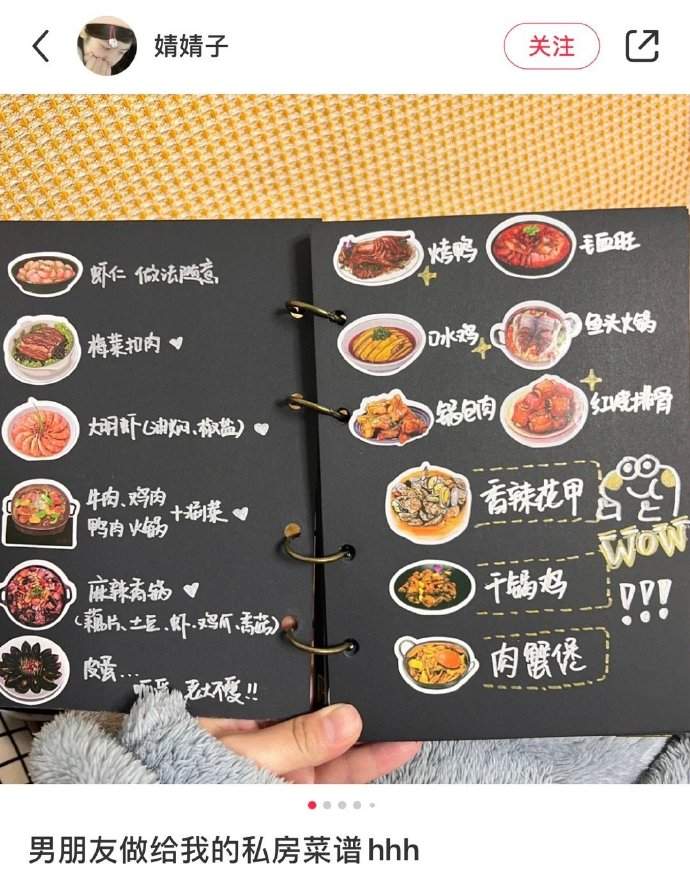 婧婧子
关注
虾仁 做法随意
梅菜扣肉
大明虾(油焖、椒盐)
牛肉、鸡肉
鸭肉火锅 +涮菜
麻辣香锅
(藕片、土豆、虾、鸡爪、香菇)
皮蛋...
烤鸭
毛血旺
口水鸡
鱼头火锅
锅包肉
红烧排骨
香辣花甲
干锅鸡
肉蟹煲
WOW
!!!
男朋友做给我的私房菜谱hhh